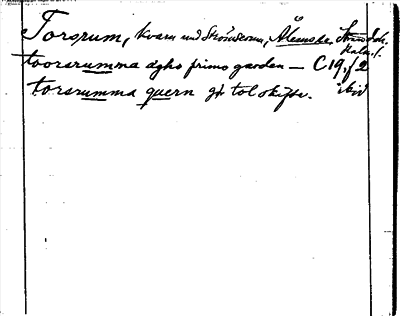 Torsrum, kvarn vid Strömsrum, Ålemske. Stranda h.
Kalm. l.
toorsrumma agho primo garden — C 19, f 2
torsrumma quern gh tolskifte. ibid